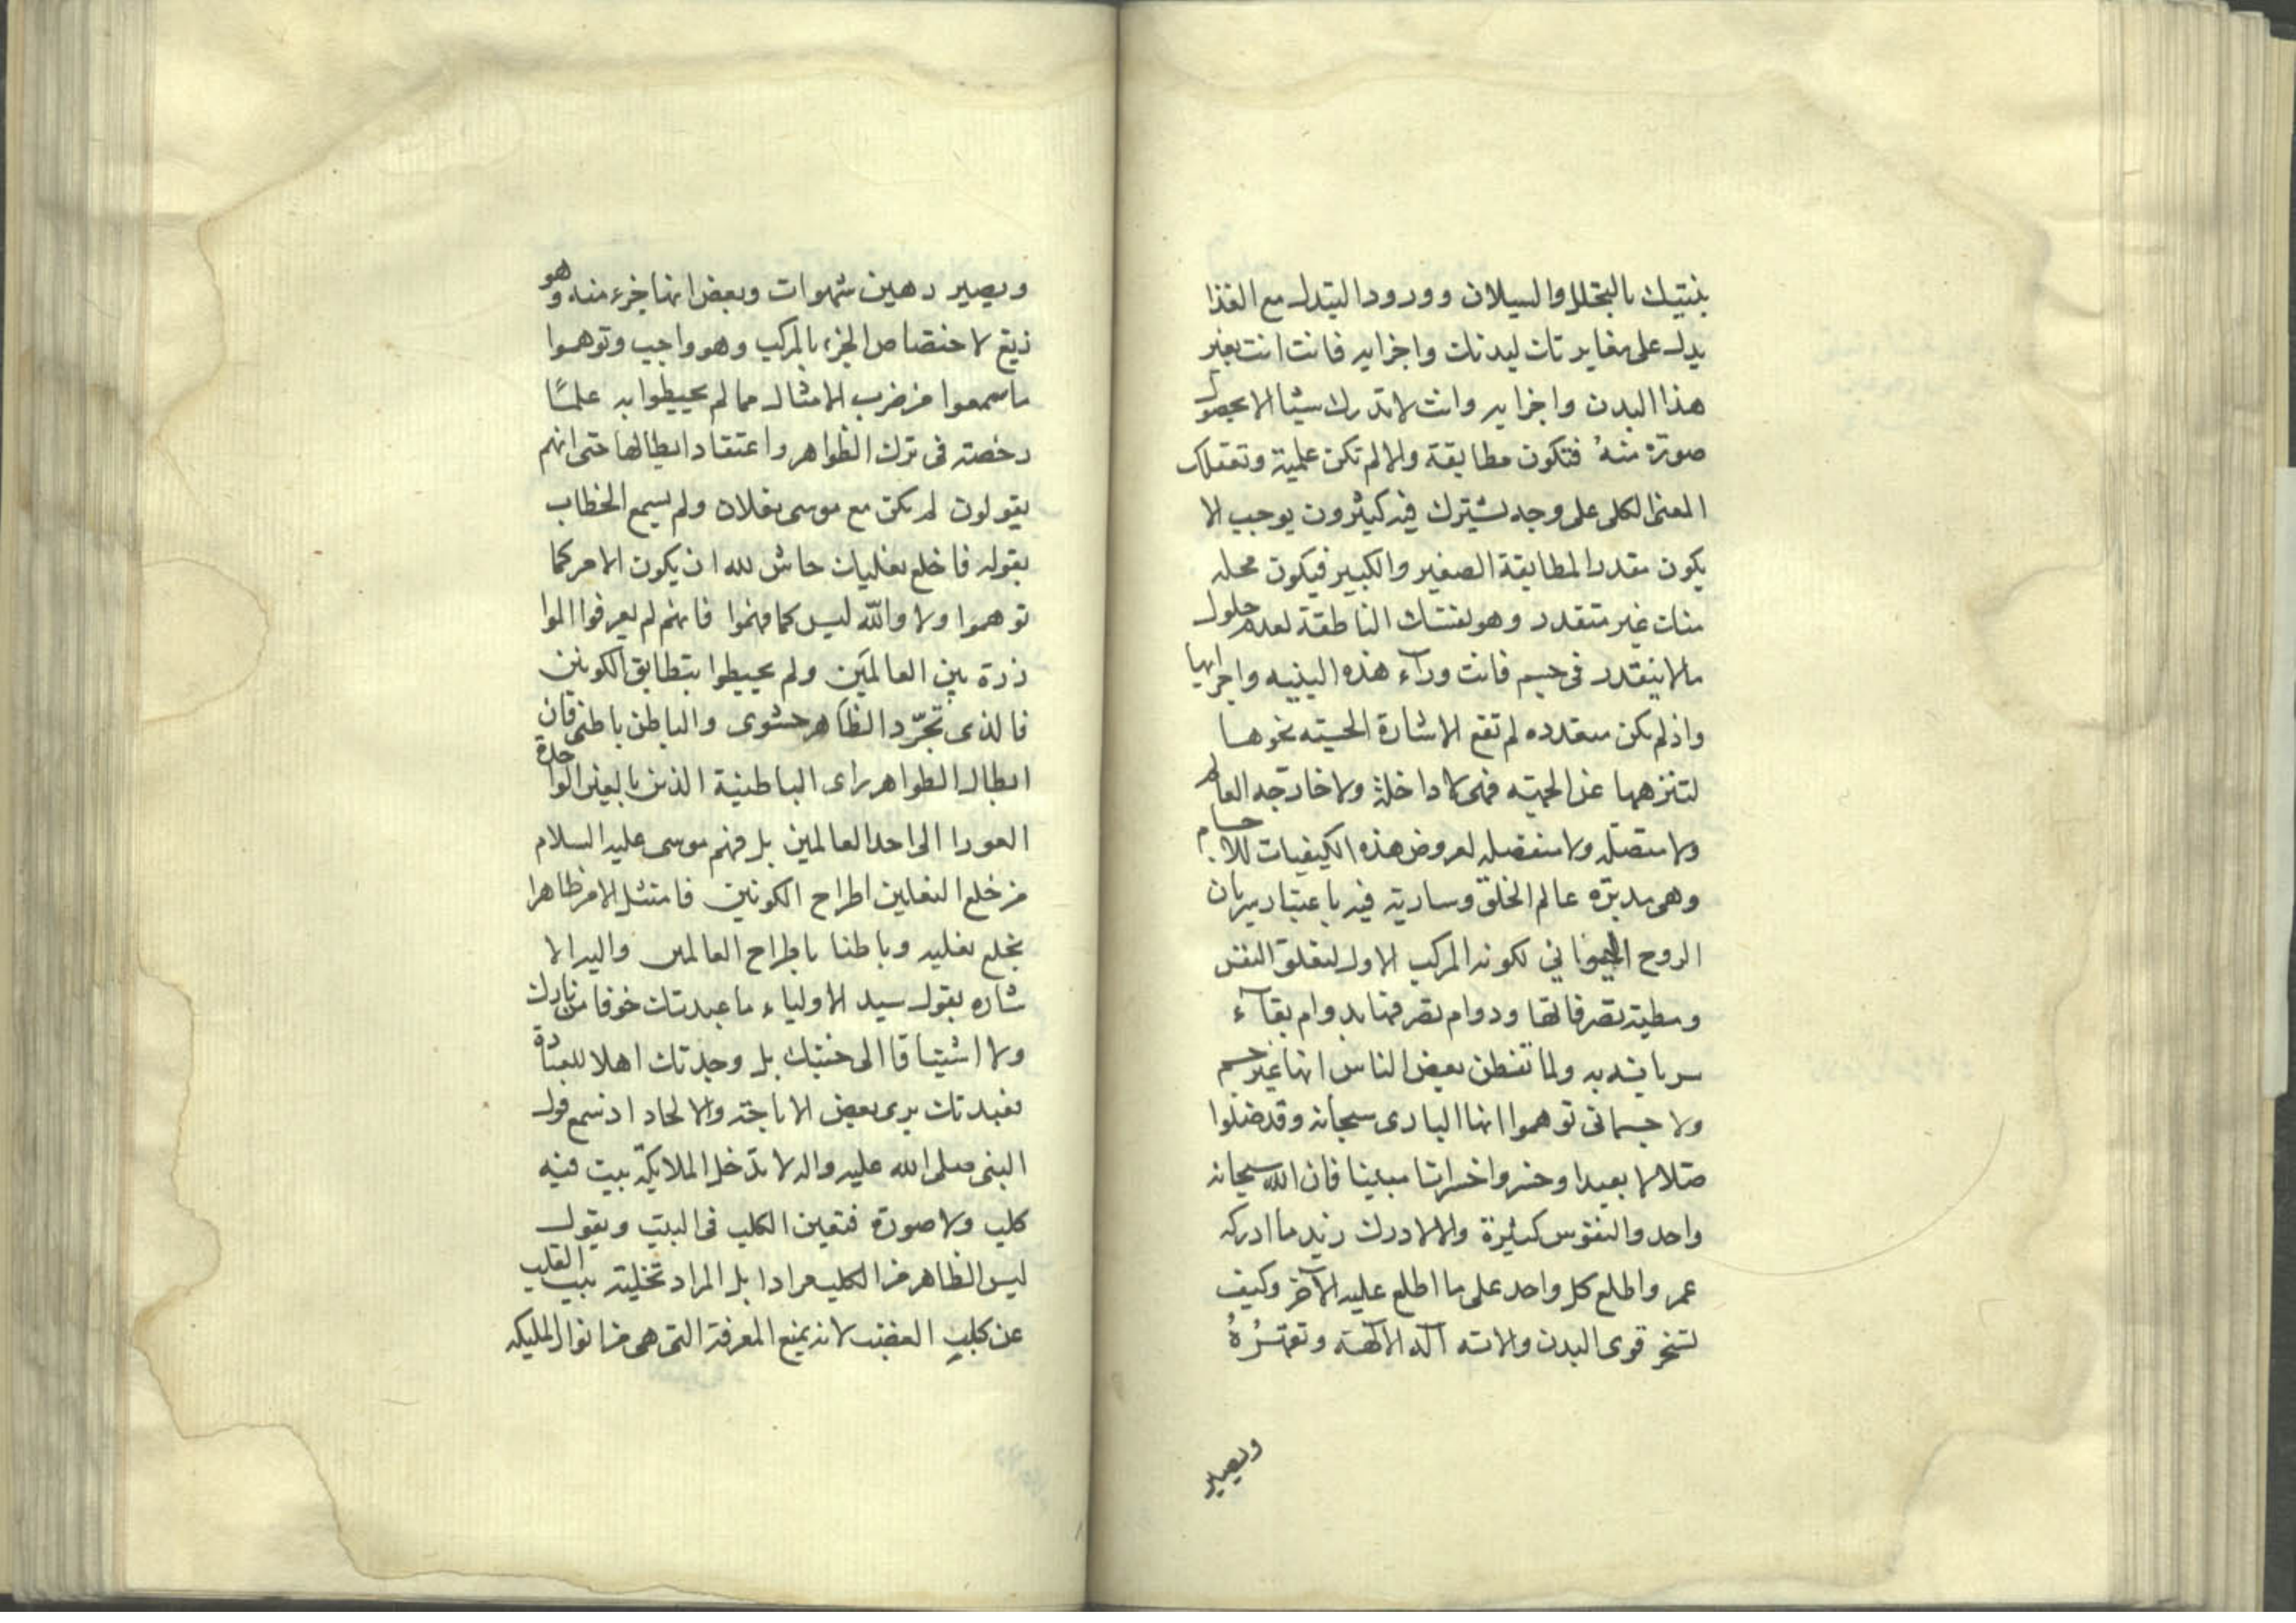 بنيتك بالتحلل والسيلان وورود البدل مع الغذا
يدل على مغايرتك لبدنك واجزايه فانت انت بغير
هذا البدن واجزايه وانت لا تدرك شيئا الا بحصول
صورة منهُ فتكون مطابقة والا لم تكن علمية وتعقلك
المعنى الكلى على وجه يشترك فيه كثيرون يوجب الا
يكون مقدرا لمطابقة الصغير والكبير فيكون محله
منك غير متقدر وهو نفسك الناطقة لعدم حلول
مالا يتقدر فى جسم فانت ورآء هذه البنيه واجزايها
واذ لم تكن متقدره لم تقع الاشارة الحسيه نحوها
لتنزهها عن الجهته فهى لا داخلة ولا خارجه العالم
ولا متصله ولا منفصله لعروض هذه الكيفيات للاجسام
وهى مدبرّه عالم الخلق وسارية فيه باعتبار سريان
الروح الحيوانى لكونه المركب الاول لتعلق النفس
ومطية تصرفاتها ودوام تصرفها بدوام بقآء
سريانه به ولما تفطن بعض الناس انها غير جسم
ولا جسمانى توهموا انها البارى سبحانه وقد ضلوا
ضلالا بعيدا وخسروا خسرانا مبينا فان الله سبحانه
واحد والنفوس كثيرة والا لادرك زيد ما ادركه
عمر واطلع كل واحد على ما اطلع عليه الآخر وكيف
تسخر قوى البدن والاته اله الآلهة وتقهرُهُ
ويصير
ويصير رهين شهوات وبعض انها جزء منه وهو
زيغ لاختصاص الجزء بالمركب وهو واجب وتوهموا
ما سمعوا من ضرب الامثال مما لم يحيطوا به علمًا
رخصته فى ترك الظواهر واعتقاد ابطالها حتى انهم
يقولون لم يكن مع موسى نعلان ولم يسمع الخطاب
بقوله فاخلع نعليك حاش لله ان يكون الامر كما
توهموا ولا والله ليس كما فهموا فانهم لم يعرفوا الموا
زرة بين العالمَين ولم يحيطوا بتطابق الكونين
فالذى تجرّد الظاهر حشوى والباطن باطنى فان
ابطال الظواهر راى الباطنية الذين بالعين الواحدة
العورا الى احد العالمين بل فهم موسى عليه السلام
من خلع النعلين اطراح الكونين فامتثل الامر ظاهرا
بخلع نعليه وباطنا باطراح العالمين واليه الا
شاره بقول سيد الاولياء ما عبدتك خوفا من نارك
ولا اشتياقا الى جنتك بل وجدتك اهلا للعبادة
فعبدتك يرى بعض الاباحة والالحاد اذ سمع قول
النبى صلى الله عليه واله لا تدخل الملايكة بيت فيه
كلب ولا صورة فتعين الكلب فى البيت ويقول
ليس الظاهر من الكلب مرادا بل المراد تخلية بيت القلب
عن كلب الغضب لانه يمنع المعرفة التى هى من انوار المليكه